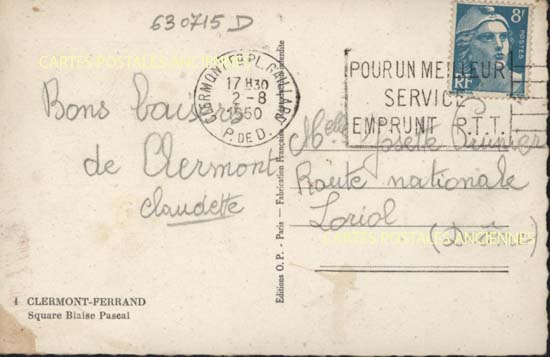 630715 D
CARTES POSTALES ANCIENNES
CLERMONT-FD PL. GAILLARD
17 H30
2 - 8
1950
P. DE D.
POUR UN MEILLEUR
SERVICE
EMPRUNT P.T.T.
8F
POSTES
RF
Bons baisers
de Clermont
Claudette
Melle Josette
Route nationale
Loriol
(Drôme)
CARTES POSTALES ANCIENNES
Editions O. P. - Paris — Fabrication Française - Reproduction interdite
4 CLERMONT-FERRAND
Square Blaise Pascal